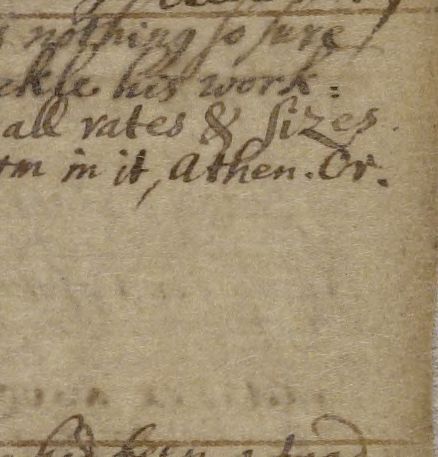 nothing so sure
his work:
all rates & sizes.
in it, Athen. Or.